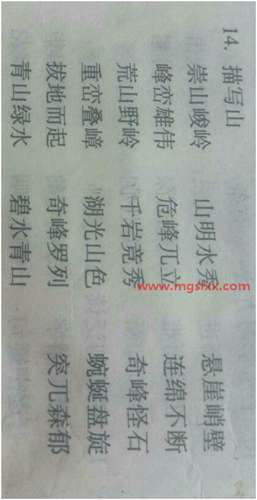 14. 描写山
崇山峻岭 山明水秀 悬崖峭壁
峰峦雄伟 危峰兀立 连绵不断
荒山野岭 千岩竞秀 奇峰怪石
重峦叠嶂 湖光山色 蜿蜒盘旋
拔地而起 奇峰罗列 突兀森郁
青山绿水 碧水青山
www.mgsfxx.com